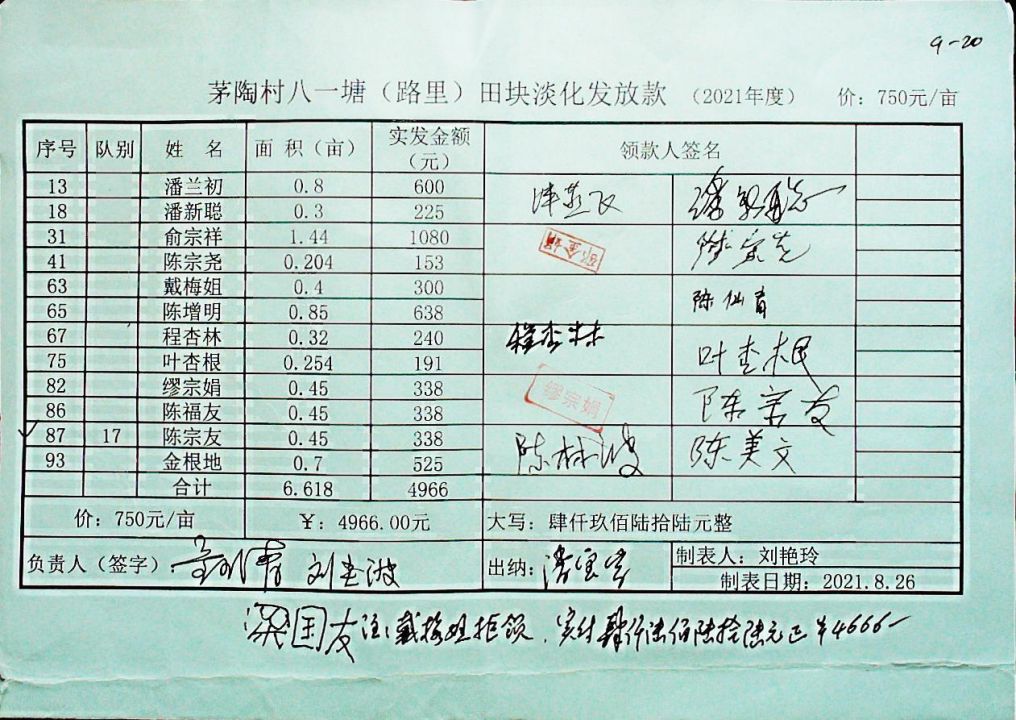 9-20
茅陶村八一塘（路里）田块淡化发放款 （2021年度） 价：750元/亩
序号 队别 姓 名 面 积（亩） 实发金额（元） 领款人签名
13 潘兰初 0.8 600
18 潘新聪 0.3 225
31 俞宗祥 1.44 1080
41 陈宗尧 0.204 153
63 戴梅姐 0.4 300
65 陈增明 0.85 638 陈仙育
67 程杏林 0.32 240 程杏林
75 叶杏根 0.254 191 叶杏根
82 缪宗娟 0.45 338 缪宗娟
86 陈福友 0.45 338 陈宗友
87 17 陈宗友 0.45 338
93 金根地 0.7 525 陈林波 陈美文
合计 6.618 4966
价：750元/亩 ￥：4966.00元 大写：肆仟玖佰陆拾陆元整
负责人（签字）： 出纳： 制表人：刘艳玲
制表日期：2021.8.26
梁国友 注：戴梅姐拒领，实付肆仟陆佰陆拾陆元正 ￥4666-